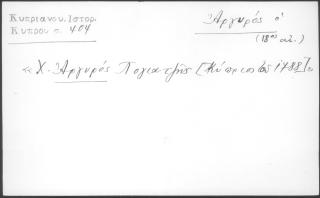 Κυπριανου. Ιστορ.
Κυπρου σ. 404
Ἀργυρός ὁ
(18ος αἰ.)
« Χ. Ἀργυρός Πογιατζῆς [Κύπριος 1788]»